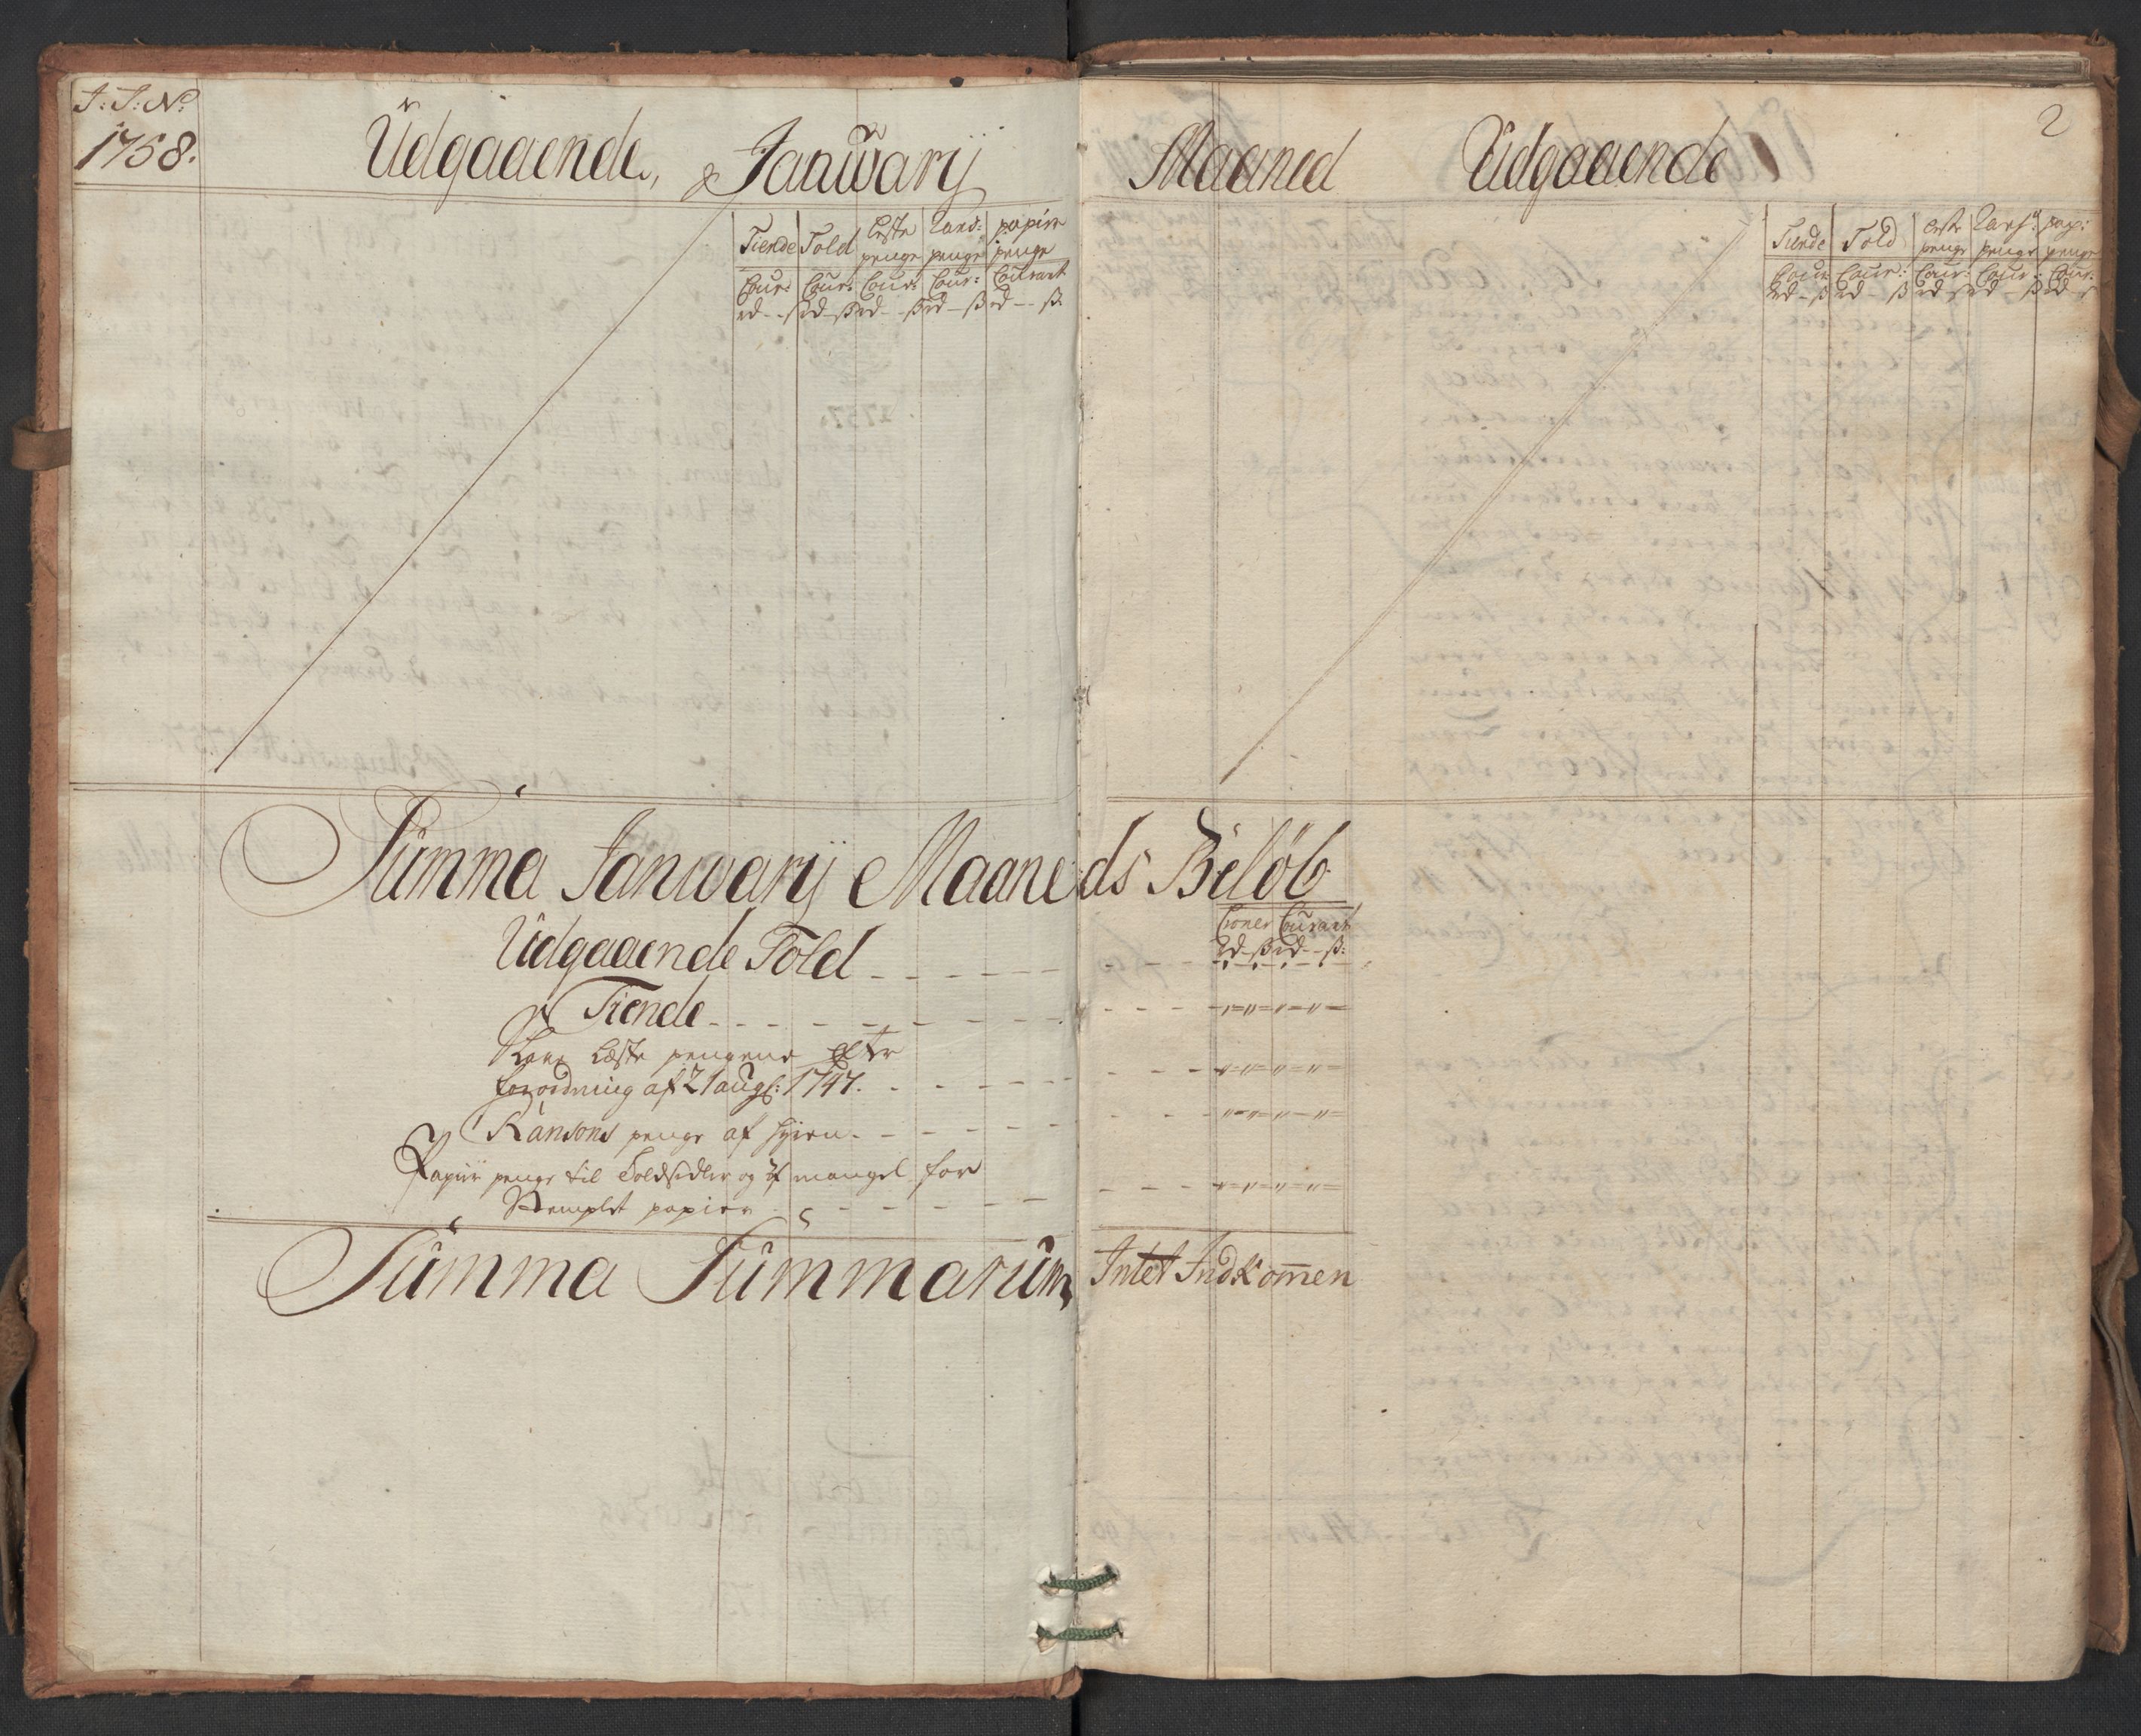 J: J: No
1758.
Udgaaende, Januarij Maaned Udgaaende 2
Tiende Told Læste penge Rans: penge papiir penge
Cour: Cour: Cour: Cour: Courant
rd - ß rd - ß rd - ß rd - ß rd - ß:
Tiende Told Læste penge Rans: penge pap: penge
Cour: Cour: Cour: Cour: Cour:
rd - ß rd - ß rd ß rd - ß rd ß
Summa Januarij Maaneds Beløb
Croner Courant
rd - ß rd - ß:
Udgaaende Told
Tiende
Læste pengene efter
forordning af 21 aug: 1747.
Ransons penge af
Papiir penge til Toldsedler og i mangel for
Stemplet papier
Summa Summarum Intet Indkomen